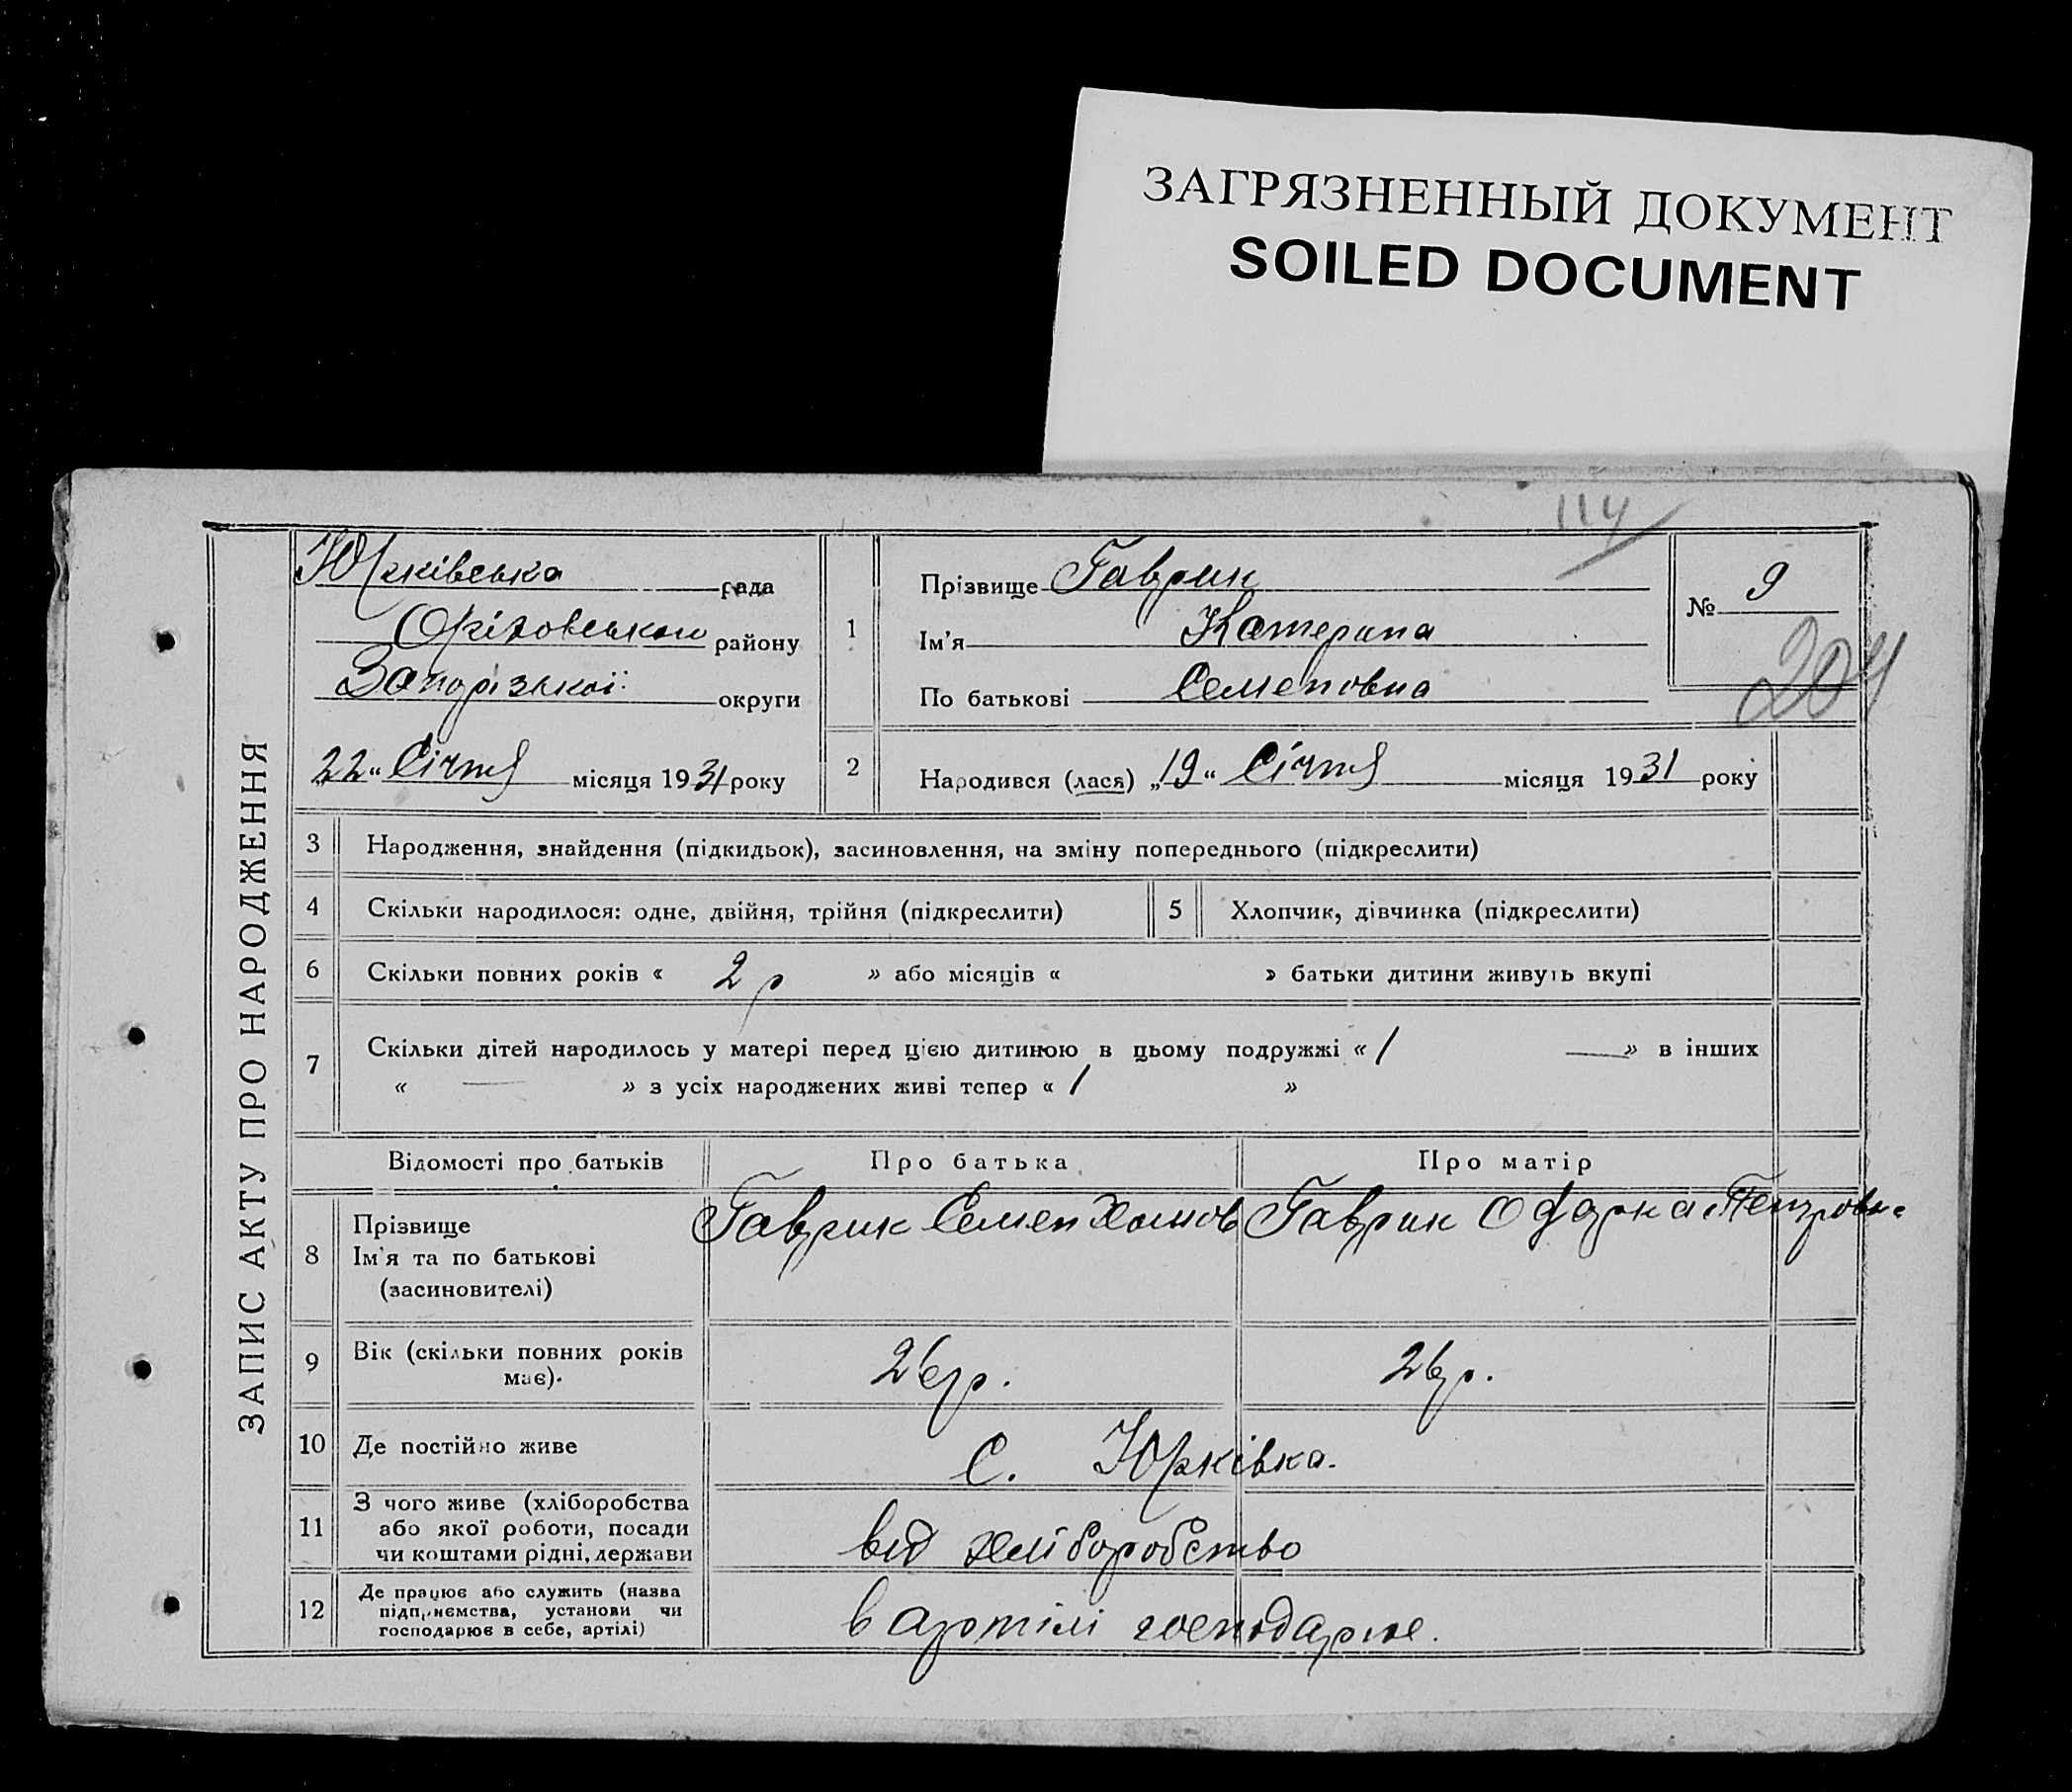 ЗАГРЯЗНЕННЫЙ ДОКУМЕНТ
SOILED DOCUMENT
114
ЗАПИС АКТУ ПРО НАРОДЖЕННЯ
Юрківська рада
Оріховського району
Запорізької округи
„22“ Січня місяця 1931 року
1
Прізвище Гаврик
Ім'я Катерина
По батькові Семеновна
№ 9
204
2 Народився (лася) „19“ Січня місяця 1931 року
3 Народження, знайдення (підкидьок), засиновлення, на зміну попереднього (підкреслити)
4 Скільки народилося: одне, двійня, трійня (підкреслити)
5 Хлопчик, дівчинка (підкреслити)
6 Скільки повних років « 2 р » або місяців « » батьки дитини живуть вкупі
7 Скільки дітей народилось у матері перед цією дитиною в цьому подружжі « 1 —» в інших
« — » з усіх народжених живі тепер « 1 »
Відомості про батьків Про батька Про матір
8 Прізвище
Ім'я та по батькові
(засиновителі)
Гаврик Семен Хомов
Гаврик Одарка Петровна
9 Вік (скільки повних років
має).
26 р. 26 р.
10 Де постійно живе
С. Юрківка.
11 З чого живе (хліборобства
або якої роботи, посади
чи коштами рідні, держави
від хліборобство
12 Де працює або служить (назва
підприємства, установи чи
господарює в себе, артілі)
в артілі господарює.